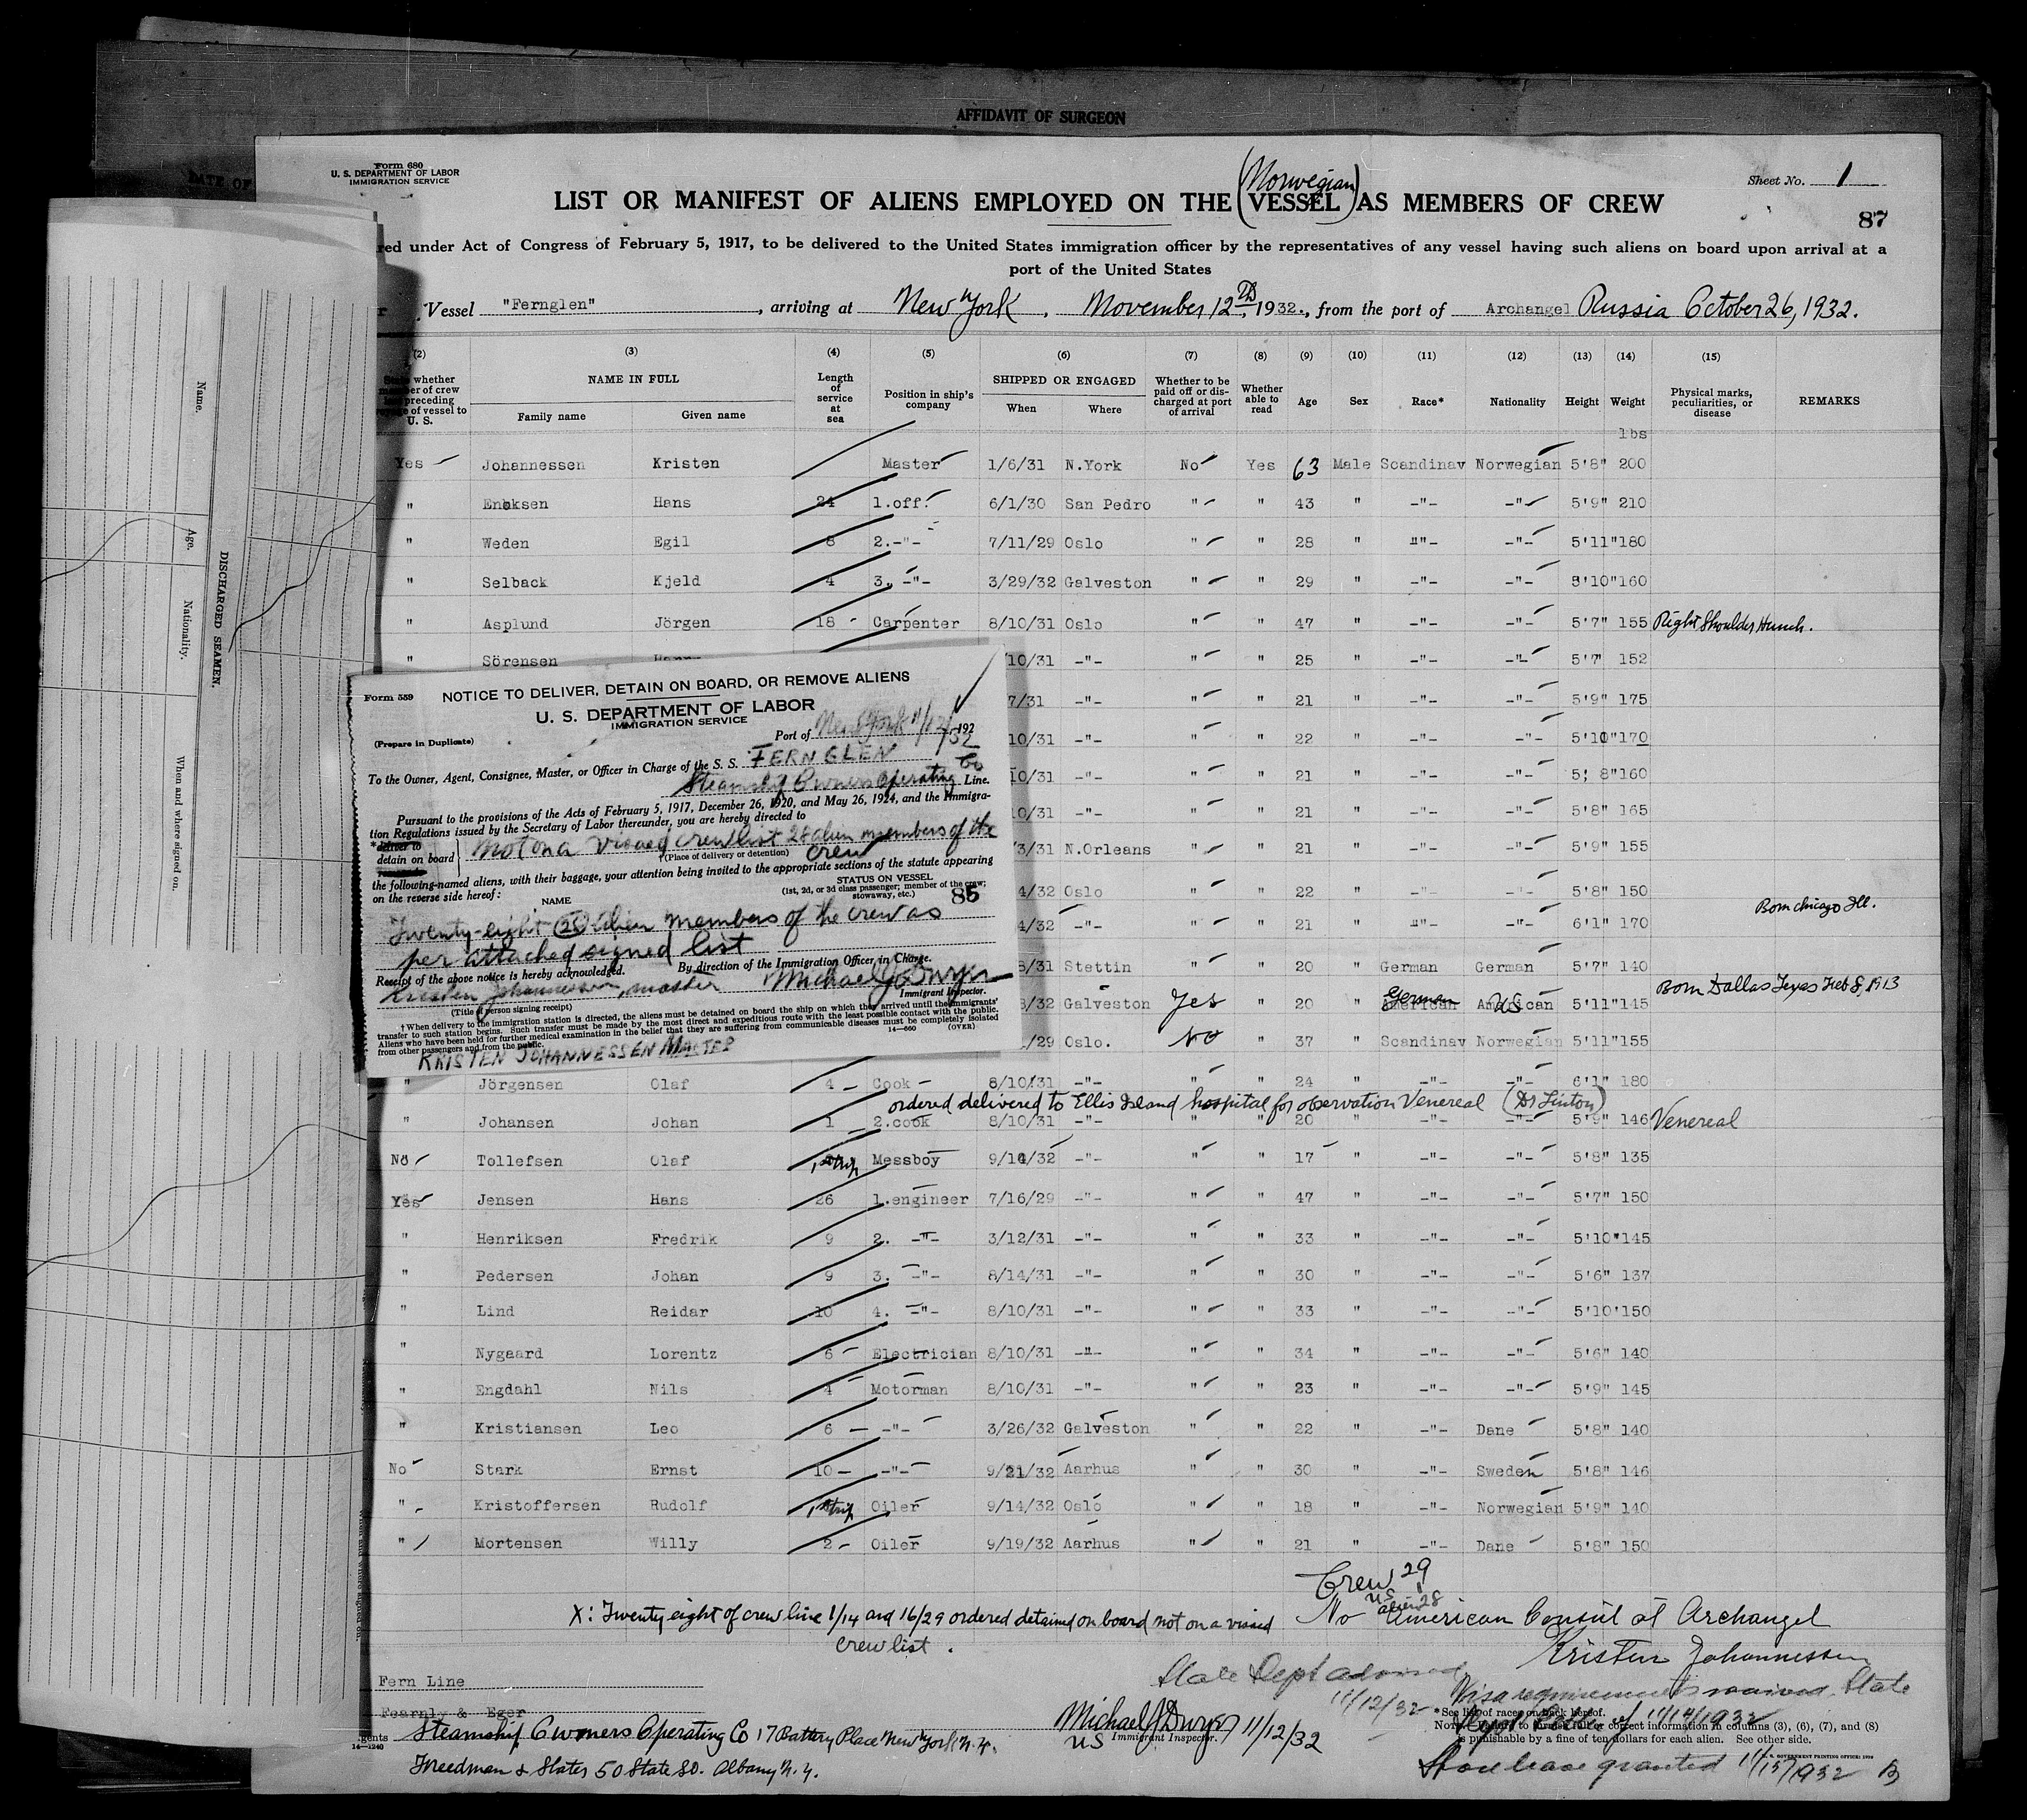 AFFIDAVIT OF SURGEON
Form 680
U. S. DEPARTMENT OF LABOR
IMMIGRATION SERVICE
Sheet No. 1
LIST OR MANIFEST OF ALIENS EMPLOYED ON THE (Norwegian VESSEL) AS MEMBERS OF CREW
87
red under Act of Congress of February 5, 1917, to be delivered to the United States immigration officer by the representatives of any vessel having such aliens on board upon arrival at a
port of the United States
Vessel "Fernglen", arriving at New York, November 12th, 1932., from the port of Archangel Russia October 26, 1932.
(2) (3) (4) (5) (6) (7) (8) (9) (10) (11) (12) (13) (14) (15)
State whether member of crew last preceding voyage of vessel to U. S. NAME IN FULL Family name Given name Length of service at sea Position in ship's company SHIPPED OR ENGAGED When Where Whether to be paid off or discharged at port of arrival Whether able to read Age Sex Race* Nationality Height Weight Physical marks, peculiarities, or disease REMARKS
lbs
Yes Johannessen Kristen Master 1/6/31 N.York No Yes 63 Male Scandinav Norwegian 5'8" 200
" Enoksen Hans 24 1.off. 6/1/30 San Pedro " " 43 " -"- -"- 5'9" 210
" Weden Egil 8 2.-"- 7/11/29 Oslo " " 28 " -"- -"- 5'11" 180
" Selback Kjeld 4 3. -"- 3/29/32 Galveston " " 29 " -"- -"- 5'10" 160
" Asplund Jörgen 18 - Carpenter 8/10/31 Oslo " " 47 " -"- -"- 5'7" 155 Right Shoulder Hunch.
" Sörensen /10/31 -"- " " 25 " -"- -"- 5'7" 152
7/31 -"- " " 21 " -"- -"- 5'9" 175
10/31 -"- " " 22 " -"- -"- 5'10" 170
10/31 -"- " " 21 " -"- -"- 5; 8" 160
10/31 -"- " " 21 " -"- -"- 5'8" 165
3/31 N.Orleans " " 21 " -"- -"- 5'9" 155
4/32 Oslo " " 22 " -"- -"- 5'8" 150
4/32 -"- " " 21 " -"- -"- 6'1" 170 Born Chicago Ill.
8/31 Stettin " " 20 " German German 5'7" 140
8/32 Galveston Yes " 20 " German American American US 5'11" 145 Born Dallas Texas Feb 8, 1913
/29 Oslo. No " 37 " Scandinav Norwegian 5'11" 155
" Jörgensen Olaf 4 - Cook - 8/10/31 -"- " " 24 " -"- -"- 6'1" 180
ordered delivered to Ellis Island hospital for observation Venereal (Dr Linton)
" Johansen Johan 1 - 2.cook 8/10/31 -"- " " 20 " -"- -"- 5'9" 146 Venereal
No Tollefsen Olaf 1st trip Messboy 9/14/32 -"- " " 17 " -"- -"- 5'8" 135
Yes Jensen Hans 26 1.engineer 7/16/29 -"- " " 47 " -"- -"- 5'7" 150
" Henriksen Fredrik 9 2. -"- 3/12/31 -"- " " 33 " -"- -"- 5'10" 145
" Pedersen Johan 9 3. -"- 8/14/31 -"- " " 30 " -"- -"- 5'6" 137
" Lind Reidar 10 4. -"- 8/10/31 -"- " " 33 " -"- -"- 5'10' 150
" Nygaard Lorentz 6 - Electrician 8/10/31 -"- " " 34 " -"- -"- 5'6" 140
" Engdahl Nils 4 - Motorman 8/10/31 -"- " " 23 " -"- -"- 5'9" 145
" Kristiansen Leo 6 - -"- 3/26/32 Galveston " " 22 " -"- Dane 5'8" 140
No Stark Ernst 10 - -"- 9/21/32 Aarhus " " 30 " -"- Sweden 5'8" 146
" Kristoffersen Rudolf 1st trip Oiler 9/14/32 Oslo " " 18 " -"- Norwegian 5'9" 140
" Mortensen Willy 2 - Oiler 9/19/32 Aarhus " " 21 " -"- Dane 5'8" 150
Crew 29
US 1
alien 28
X: Twenty eight of crew line 1/14 and 16/29 ordered detained on board not on a visaed
crew list.
No American Consul at Archangel
Kristen Johannessen
State Dept advised
11/12/32
Visa requirements waived. State
Dept letter of 11/14/1932
Fern Line
Fearnly & Eger
Steamship Owners Operating Co 17 Battery Place New York N.Y.
Freedman & Slater 50 State St. Albany N.Y.
gents
14-1240
Michael J Dwyer 11/12/32
US Immigrant Inspector.
*See list of races on back hereof.
NOTE.—Failure to furnish full or correct information in columns (3), (6), (7), and (8)
is punishable by a fine of ten dollars for each alien. See other side.
U. S. GOVERNMENT PRINTING OFFICE
Shore leave granted 11/15/1932
Form 559
NOTICE TO DELIVER, DETAIN ON BOARD, OR REMOVE ALIENS
U. S. DEPARTMENT OF LABOR
IMMIGRATION SERVICE
(Prepare in Duplicate)
Port of New York 11/12/32, 192
To the Owner, Agent, Consignee, Master, or Officer in Charge of the S. S. FERNGLEN
Steamship Owners Operating Co Line.
Pursuant to the provisions of the Acts of February 5, 1917, December 26, 1920, and May 26, 1924, and the Immigra-
tion Regulations issued by the Secretary of Labor thereunder, you are hereby directed to
*deliver to
detain on board
remove
Not on a visaed crew list 28 alien members of the
crew
†(Place of delivery or detention)
the following-named aliens, with their baggage, your attention being invited to the appropriate sections of the statute appearing
on the reverse side hereof:
NAME
STATUS ON VESSEL
(1st, 2d, or 3d class passenger; member of the crew;
stowaway, etc.)
85
Twenty-eight (28) alien members of the crew as
per attached signed list
Receipt of the above notice is hereby acknowledged.
By direction of the Immigration Officer in Charge.
Kristen Johannessen, master
Michael J Dwyer
Immigrant Inspector.
(Title of person signing receipt)
†When delivery to the immigration station is directed, the aliens must be detained on board the ship on which they arrived until the immigrants'
transfer to such station begins. Such transfer must be made by the most direct and expeditious route with the least possible contact with the public.
Aliens who have been held for further medical examination in the belief that they are suffering from communicable diseases must be completely isolated
from other passengers and from the public.
14-660
(OVER)
KRISTEN JOHANNESSEN MASTER
DISCHARGED SEAMEN.
Name.
Age.
Nationality.
When and where signed on.